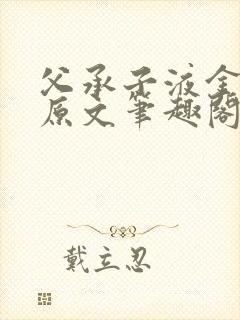 父承子液全
原文笔趣阁
戴立忍